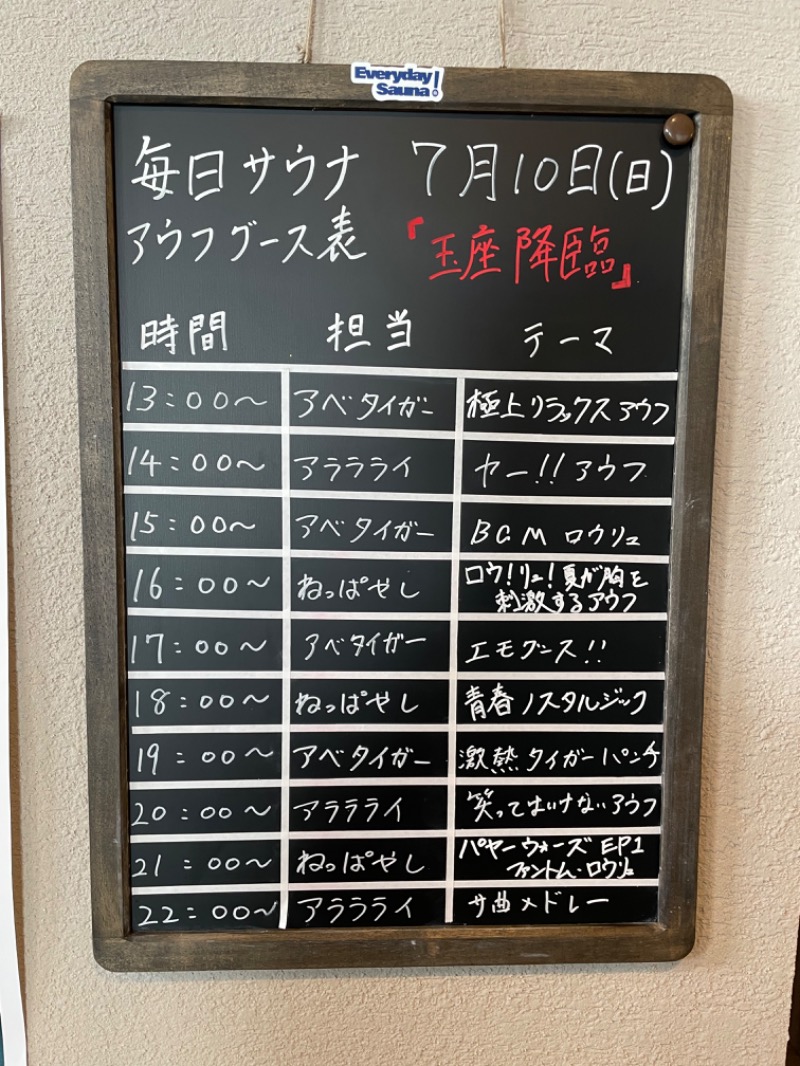 Everyday
Sauna!
毎日サウナ 7月10日(日)
アウフグース表 『玉座降臨』
時間 担当 テーマ
13:00〜 アベタイガー 極上リラックスアウフ
14:00〜 アラララライ ヤー!!アウフ
15:00〜 アベタイガー BGMロウリュ
16:00〜 ねっぱやし ロウ!リュ!夏が胸を
刺激するアウフ
17:00〜 アベタイガー エモグース!!
18:00〜 ねっぱやし 青春ノスタルジック
19:00〜 アベタイガー 激熱タイガーパンチ
20:00〜 アララライ 笑ってはいけないアウフ
21:00〜 ねっぱやし パヤーウォーズ EP1
ファントム・ロウリュ
22:00〜 アララライ サ曲メドレー